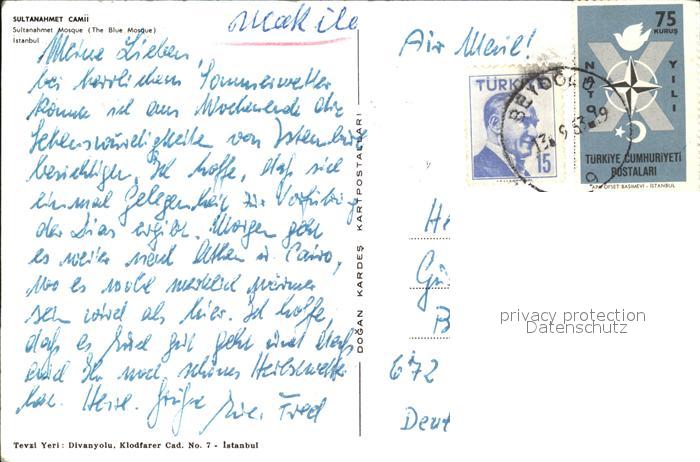 SULTANAHMET CAMİİ
Sultanahmet Mosque (The Blue Mosque)
İstanbul
Uçak ile
Air Mail!
Meine Lieben,
bei herrlichem Sommerwetter
konnte ich am Wochenende die
Sehenswürdigkeiten von Istanbul
besichtigen. Ich hoffe, daß sich
einmal Gelegenheit zur Vorführung
der Dias ergibt. Morgen geht
es weiter nach Athen u. Cairo,
wo es wohl merklich wärmer
sein wird als hier. Ich hoffe,
daß es Euch gut geht und daß
Ihr noch schönes Herbstwetter
Herzl. Grüße
Fred
Tevzi Yeri: Divanyolu, Klodfarer Cad. No. 7 - İstanbul
DOĞAN KARDEŞ KARTPOSTALLARI
TÜRKİYE
15
BEYOĞLU
75
KURUŞ
YILI
TÜRKİYE CUMHURİYETİ
POSTALARI
OFSET BASIMEVİ - İSTANBUL
He
Gü
B
672
Deut
privacy protection
Datenschutz